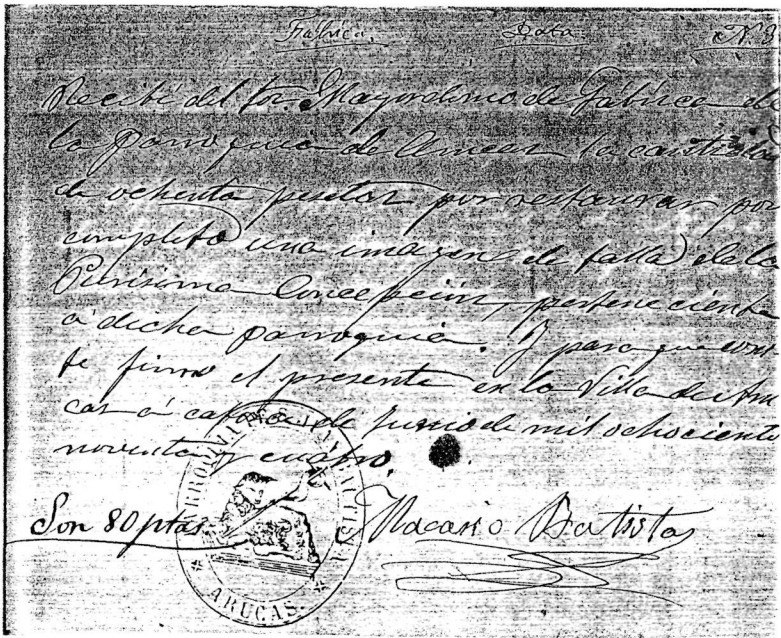 Fabrica. Data. N. 3
Recibí del Sor. Mayordomo de Fábrica de
la parroquia de Arucas la cantidad
de ochenta pesetas por restaurar por
completo una imagen de talla de la
Purísima Concepción, perteneciente
á dicha parroquia. Y para que cons
te firmo el presente en la Villa de Aru
cas á catorce de Junio de mil ochociento
noventa y cuatro.
Son 80 ptas Macario Batista
PARROQUIA DE S. JUAN BAUTISTA
ARUCAS